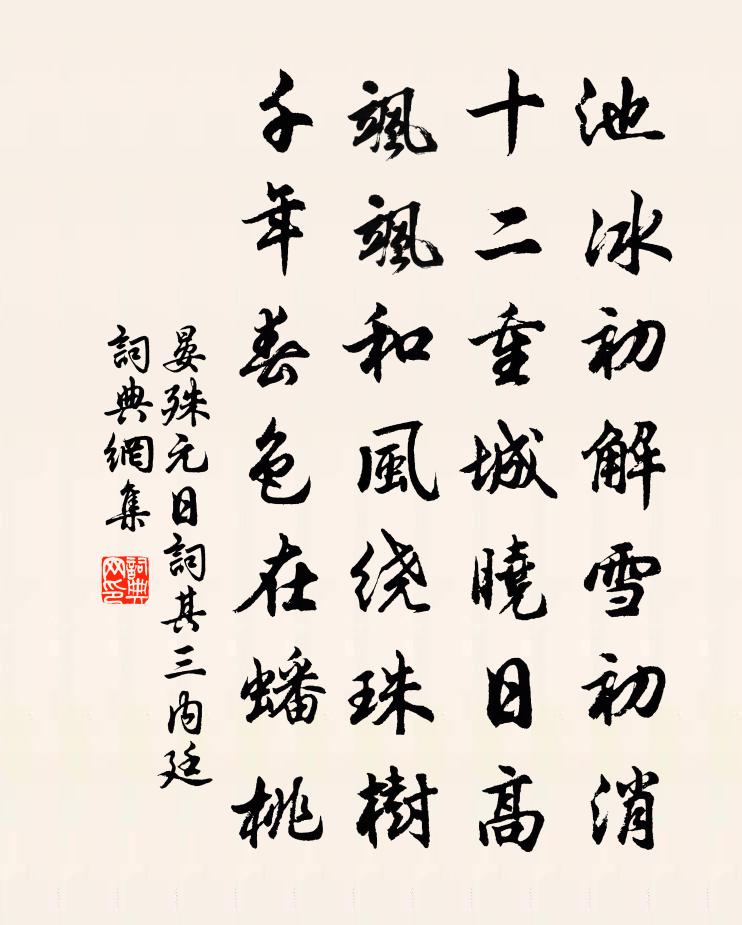 池冰初解雪初消
十二重城曉日高
颯颯和風绕珠樹
千年春色在蟠桃
晏殊元日詞其三内廷
詞典網集
詞典
网印